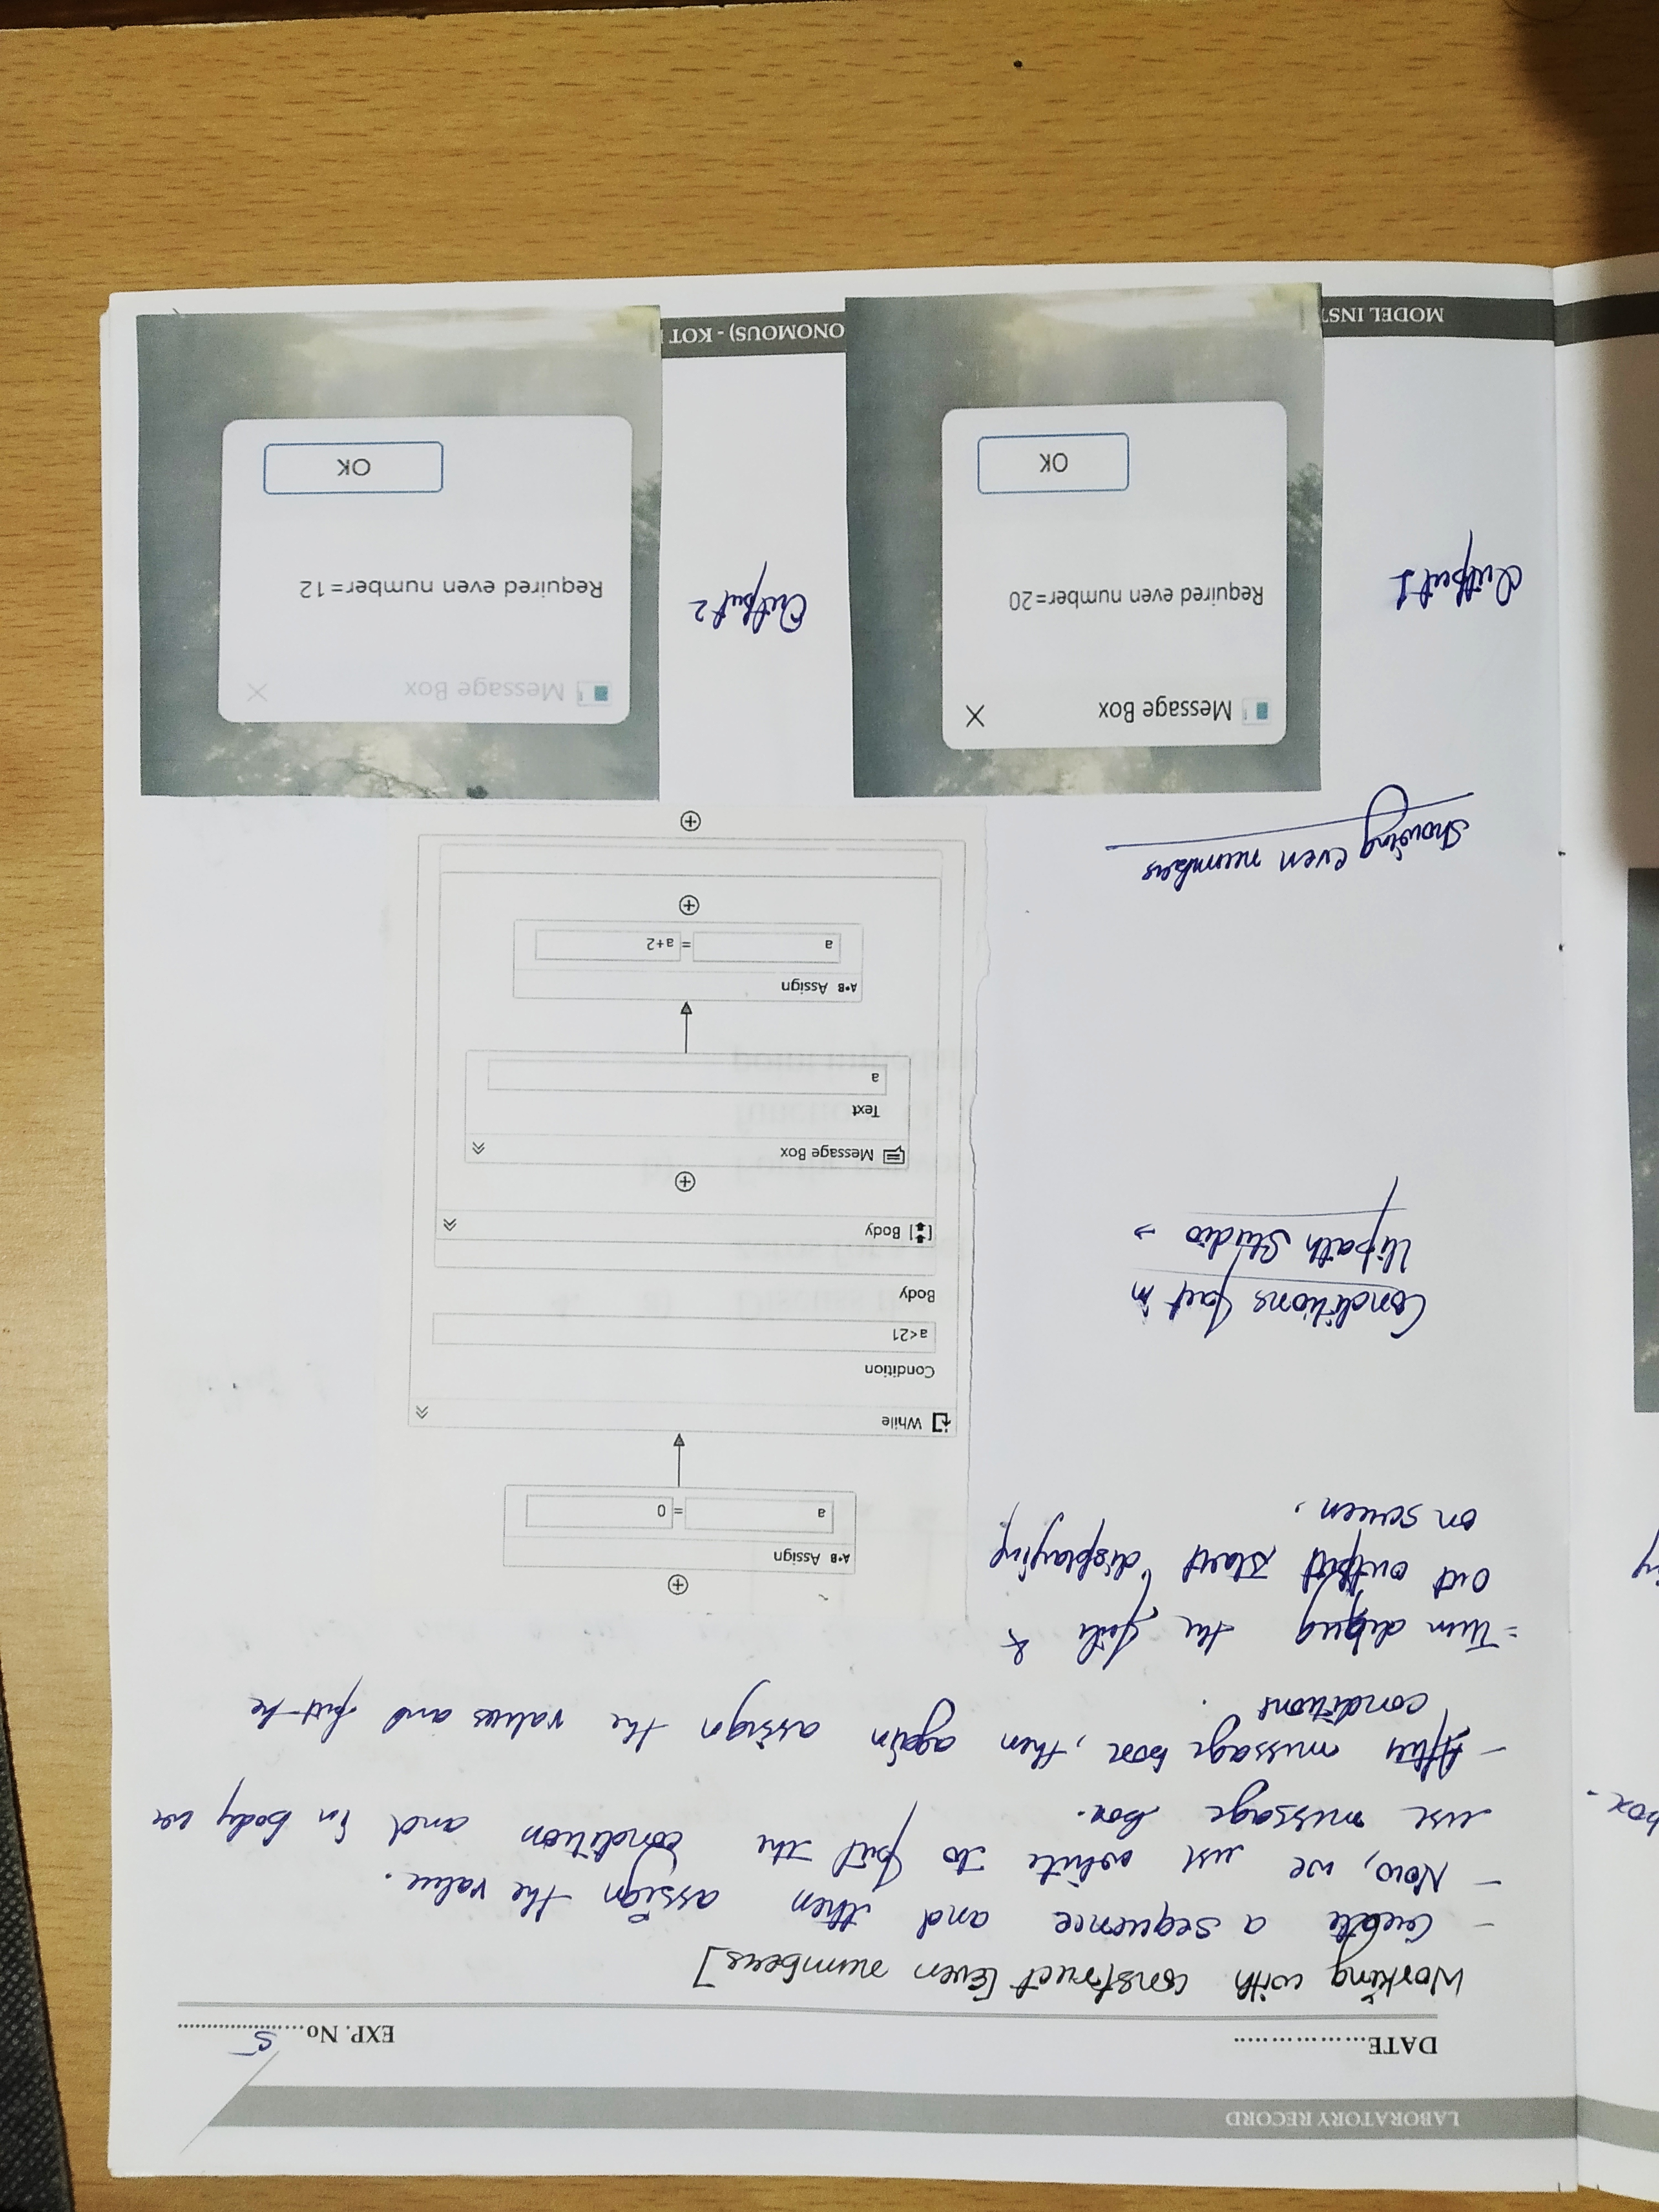 LABORATORY RECORD
DATE..................
EXP. No.....5.....
Working with construct [Even numbers]
- Create a sequence and then assign the value.
- Now, we use while to put the condition and in body we
use message box.
- After message box, then again assign the values and put he
conditions.
= Turn debug the file &
out output start displaying
on screen.
A•B Assign
a = 0
While
Condition
a<21
Body
Body
Message Box
Text
a
A•B Assign
a = a+2
Conditions put in
Uipath Studio →
Showing even numbers
Output 1
Message Box
Required even number=20
OK
Output 2
Message Box
Required even number=12
OK
MODEL INST
ONOMOUS) - KOT
box.